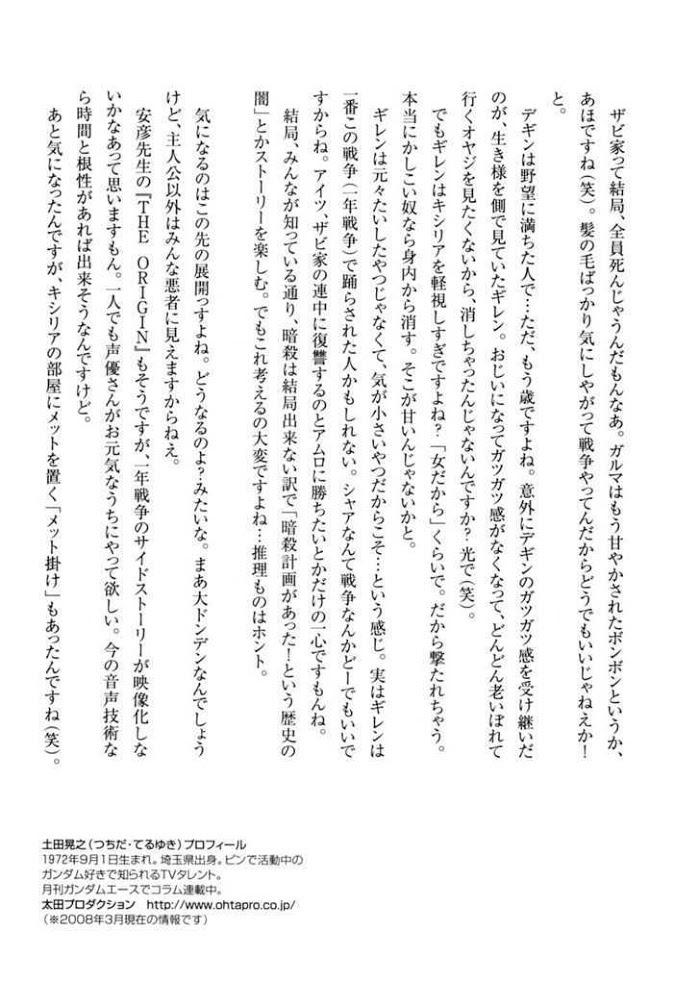 ザビ家って結局、全員死んじゃうんだもんなあ。ガルマはもう甘やかされたボンボンというか、
あほですね（笑）。髪の毛ばっかり気にしやがって戦争やってんだからどうでもいいじゃねえか！
と。
デギンは野望に満ちた人で…ただ、もう歳ですよね。意外にデギンのガツガツ感を受け継いだ
のが、生き様を側で見ていたギレン。おじいになってガツガツ感がなくなって、どんどん老いぼれて
行くオヤジを見たくないから、消しちゃったんじゃないんですか？光で（笑）。
でもギレンはキシリアを軽視しすぎですよね？「女だから」くらいで。だから撃たれちゃう。
本当にかしこい奴なら身内から消す。そこが甘いんじゃないかと。
ギレンは元々たいしたやつじゃなくて、気が小さいやつだからこそ…という感じ。実はギレンは
一番この戦争（一年戦争）で踊らされた人かもしれない。シャアなんて戦争なんかどーでもいいで
すからね。アイツ、ザビ家の連中に復讐するのとアムロに勝ちたいとかだけの一心ですもんね。
結局、みんなが知っている通り、暗殺は結局出来ない訳で「暗殺計画があった！という歴史の
闇」とかストーリーを楽しむ。でもこれ考えるの大変ですよね…推理ものはホント。
気になるのはこの先の展開っすよね。どうなるのよ？みたいな。まあ大ドンデンなんでしょう
けど、主人公以外はみんな悪者に見えますからねえ。
安彦先生の『THE ORIGIN』もそうですが、一年戦争のサイドストーリーが映像化しな
いかなあって思いますもん。一人でも声優さんがお元気なうちにやって欲しい。今の音声技術な
ら時間と根性があれば出来そうなんですけど。
あと気になったんですが、キシリアの部屋にメットを置く「メット掛け」もあったんですね（笑）。
土田晃之（つちだ・てるゆき）プロフィール
1972年9月1日生まれ。埼玉県出身。ピンで活動中の
ガンダム好きで知られるTVタレント。
月刊ガンダムエースでコラム連載中。
太田プロダクション　http://www.ohtapro.co.jp/
（※2008年3月現在の情報です）